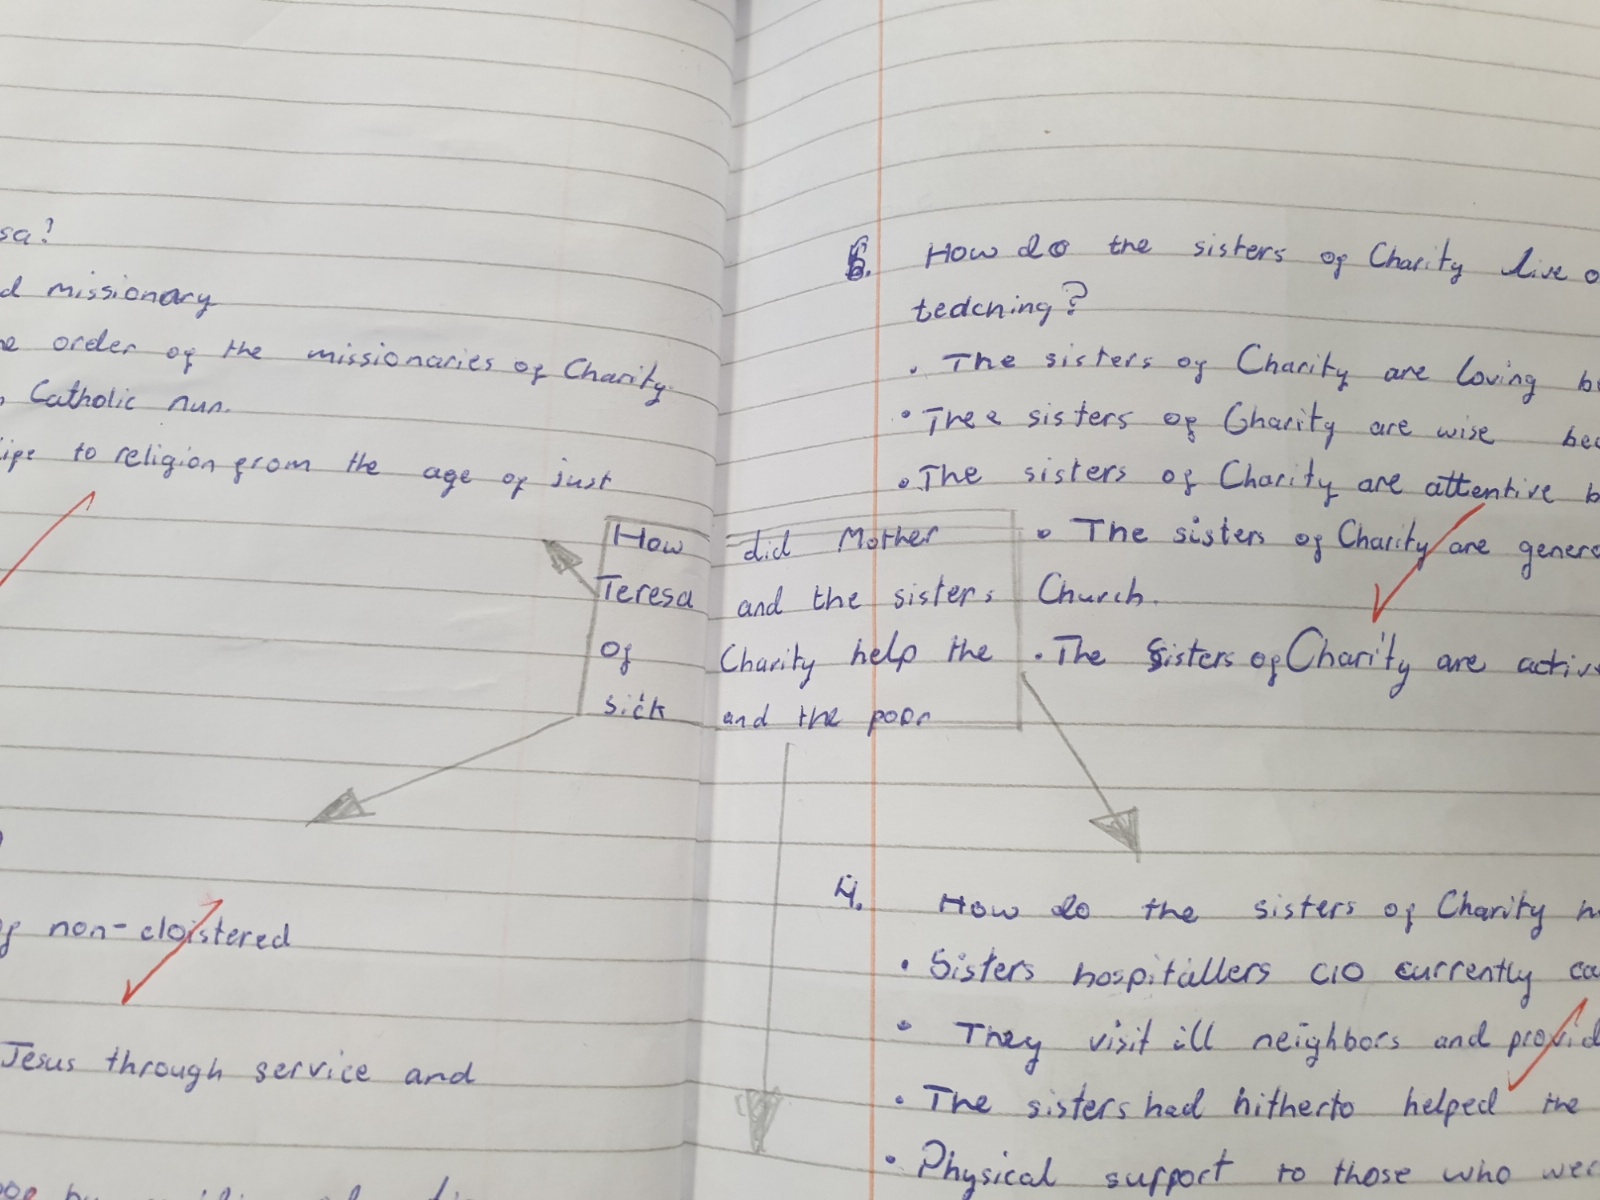 sa?
d missionary
e order of the missionaries of Charity.
Catholic nun.
to religion from the age of just
non-cloistered
Jesus through service and
How did Mother
Teresa and the sisters
of Charity help the
sick and the poor
6. How do the sisters of Charity live
tedching?
• The sisters of Charity are loving
• Thee sisters of Charity are wise
• The sisters of Charity are attentive
• The sisters of Charity are
Church.
• The Sisters of Charity are
4. How do the sisters of Charity
• Sisters hospitallers CIO currently
• They visit ill neighbors and
• The sisters had hitherto helped the
• Physical support to those who